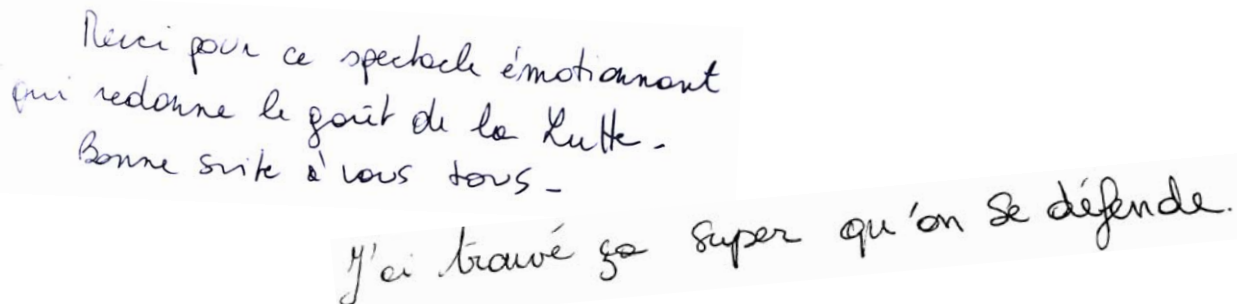 Merci pour ce spectacle émotionnant
qui redonne le goût de la Lutte.
Bonne suite à vous tous.
J'ai trouvé ça super qu'on se défende.